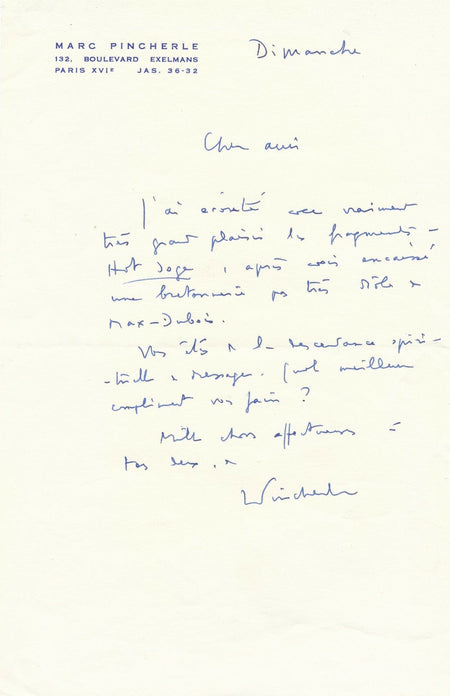 MARC PINCHERLE
132, BOULEVARD EXELMANS
PARIS XVIᵉ JAS. 36-32
Dimanche
Cher ami
J'ai écouté avec vraiment
très grand plaisir les fragments
, après avoir encaissé
une bretonnerie pas très drôle de
Max-Dubois.
Vous êtes de la descendance spiri-
-tuelle de Messager. Quel meilleur
compliment vous faire ?
Mille choses affectueuses à
tous deux, de
Pincherle